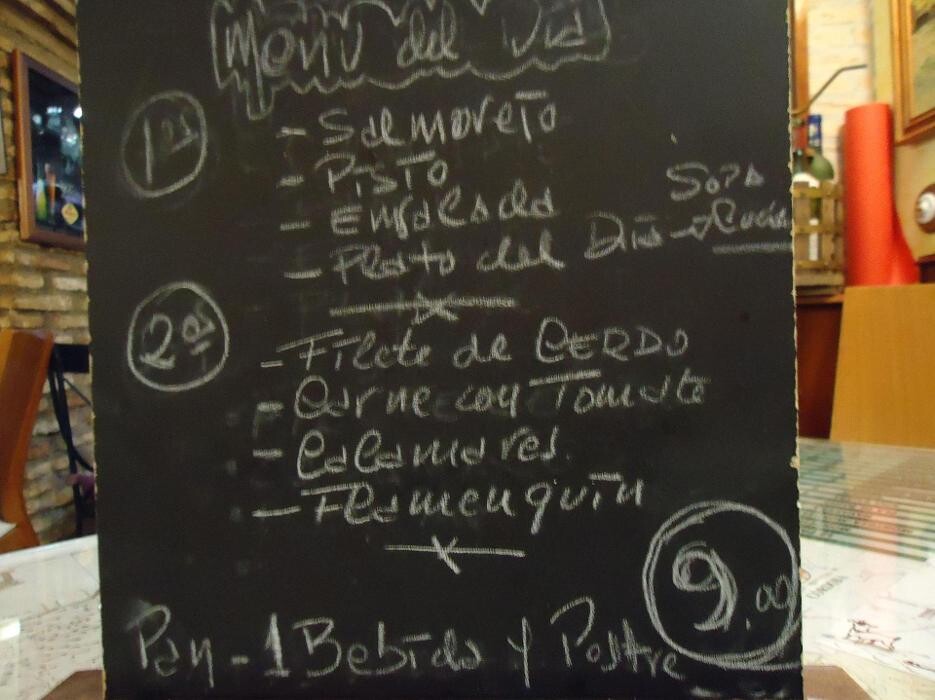 Menú del Día
1os
- Salmoreto
- Pisto
- Ensalada
- Plato del Día → Sopa
2os
- Filete de CERDO
- Carne con Tomate
- Calamares.
- Flamenquín
9.00
Pan - 1 Bebida y Postre